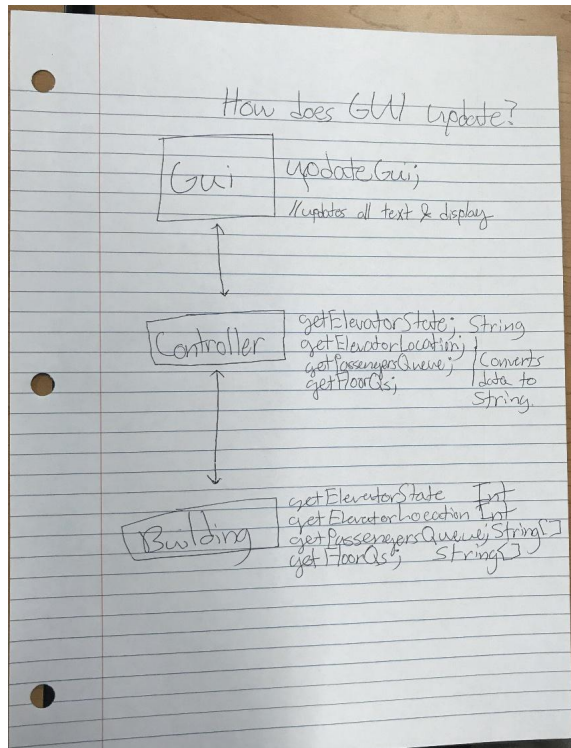 How does GUI update?
Gui
updateGui;
//updates all text & display
Controller
getElevatorState; String
getElevatorLocation;
getPassengersQueue;
getFloorQs;
Converts
data to
String.
Building
getElevatorState Int
getElevatorLocation Int
getPassengersQueue; String[]
getFloorQs; String[]